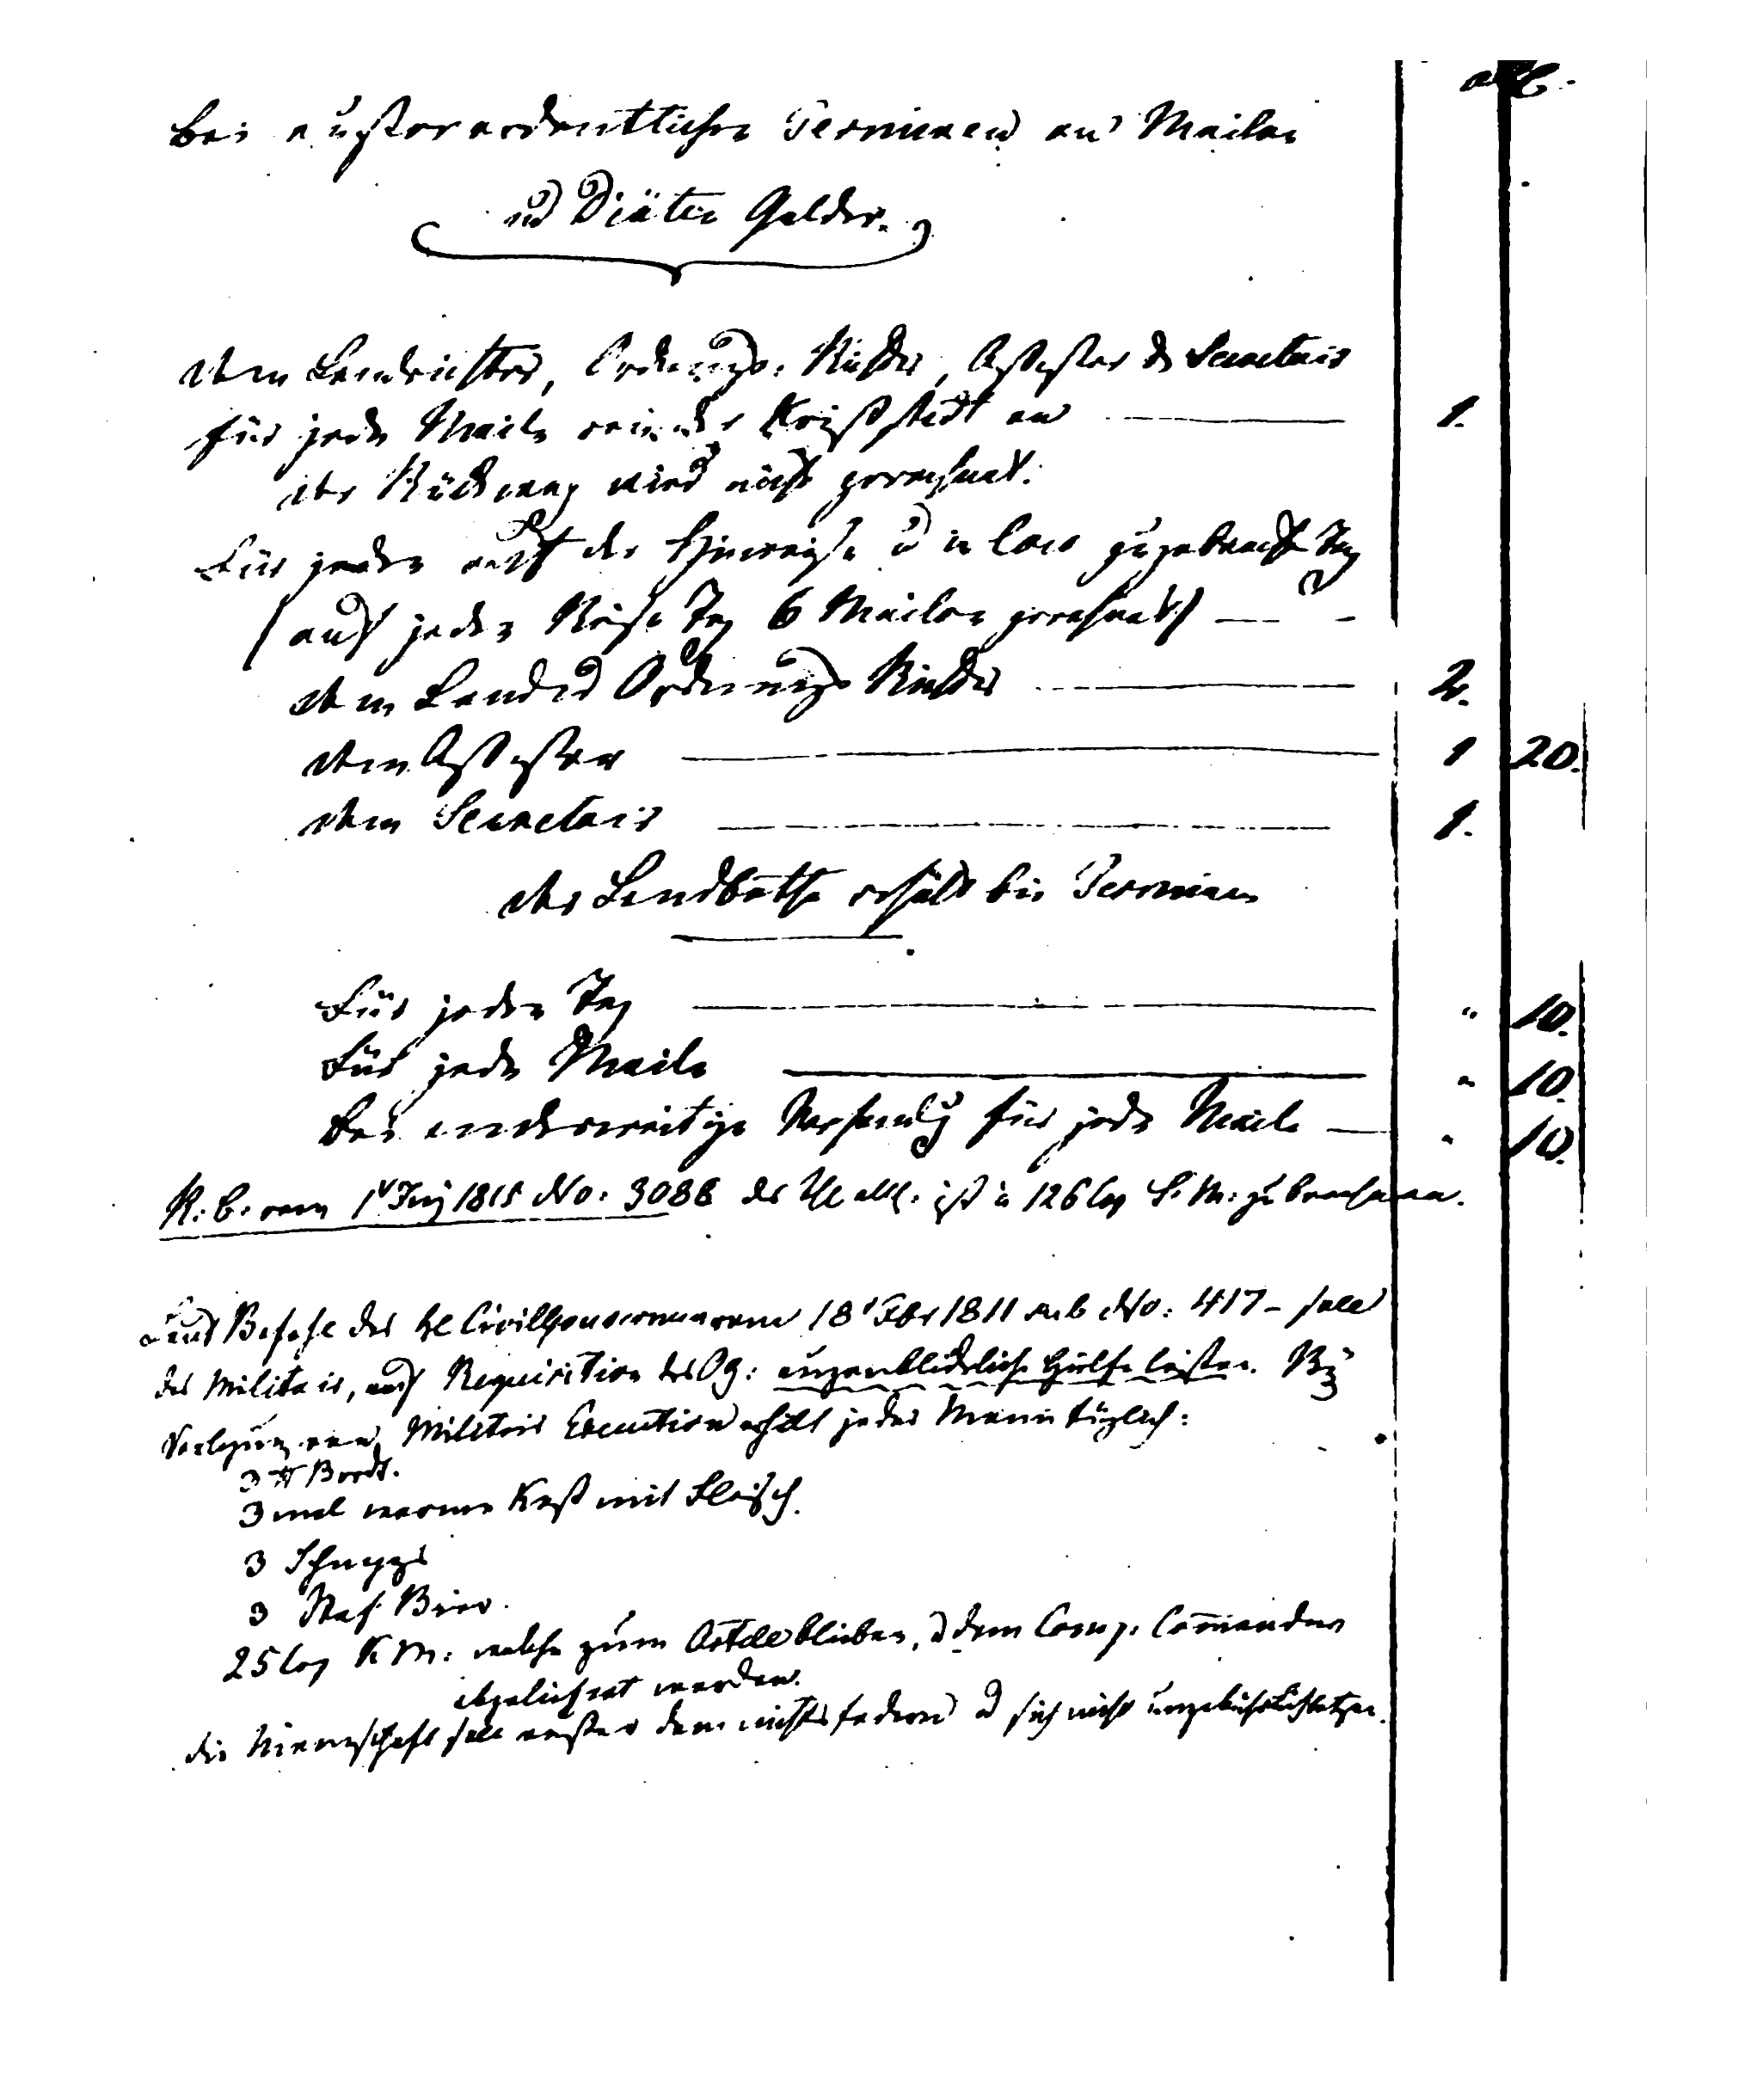 Bei außerordentlichen Terminen an Meilen
und Diäten Gelder.
dem Landrichter, Ordnungs-Richter, Assessor & Secretair
für jede Meile von der Kreißstadt an 1.
der Rückweg wird nicht gerechnet.
Für jeden auf der Hinreise u in loco zugebrachten Tag
(auf jeden Reise Tag 6 Meilen gerechnet)
dem Land u Ordnungs Richter 2.
dem Assessor 1 20.
dem Secretair 1.
der Landbothe erhält bei Terminen
Für jeden Tag " 10.
Für jede Meile " 10.
Bei anderweitiger Versendung für jede Meile " 10.
R. B. vom 1 1815 No: 3088 der ist à 126 Cop S. M. zu berechnen.
Laut Befehl des H Civilgouverneuren vom 18 Febr 1811 sub No: 417 - soll
das Militair, auf Requisition des Og: augenblickliche Hülfe leisten. Bey
Verlegung von Militair Execution erhält jeder Mann täglich:
3 ℔ Brodt.
3 mal warme Kost mit Fleisch.
3 Schnapps
3 Bier.
25 Cop K M: welche zum Artell bleiben, u dem Comp. Commandeur
abgeliefert werden.
die Mannschaft soll außer dem nichts fodern u sich nicht ungebührlich betragen.